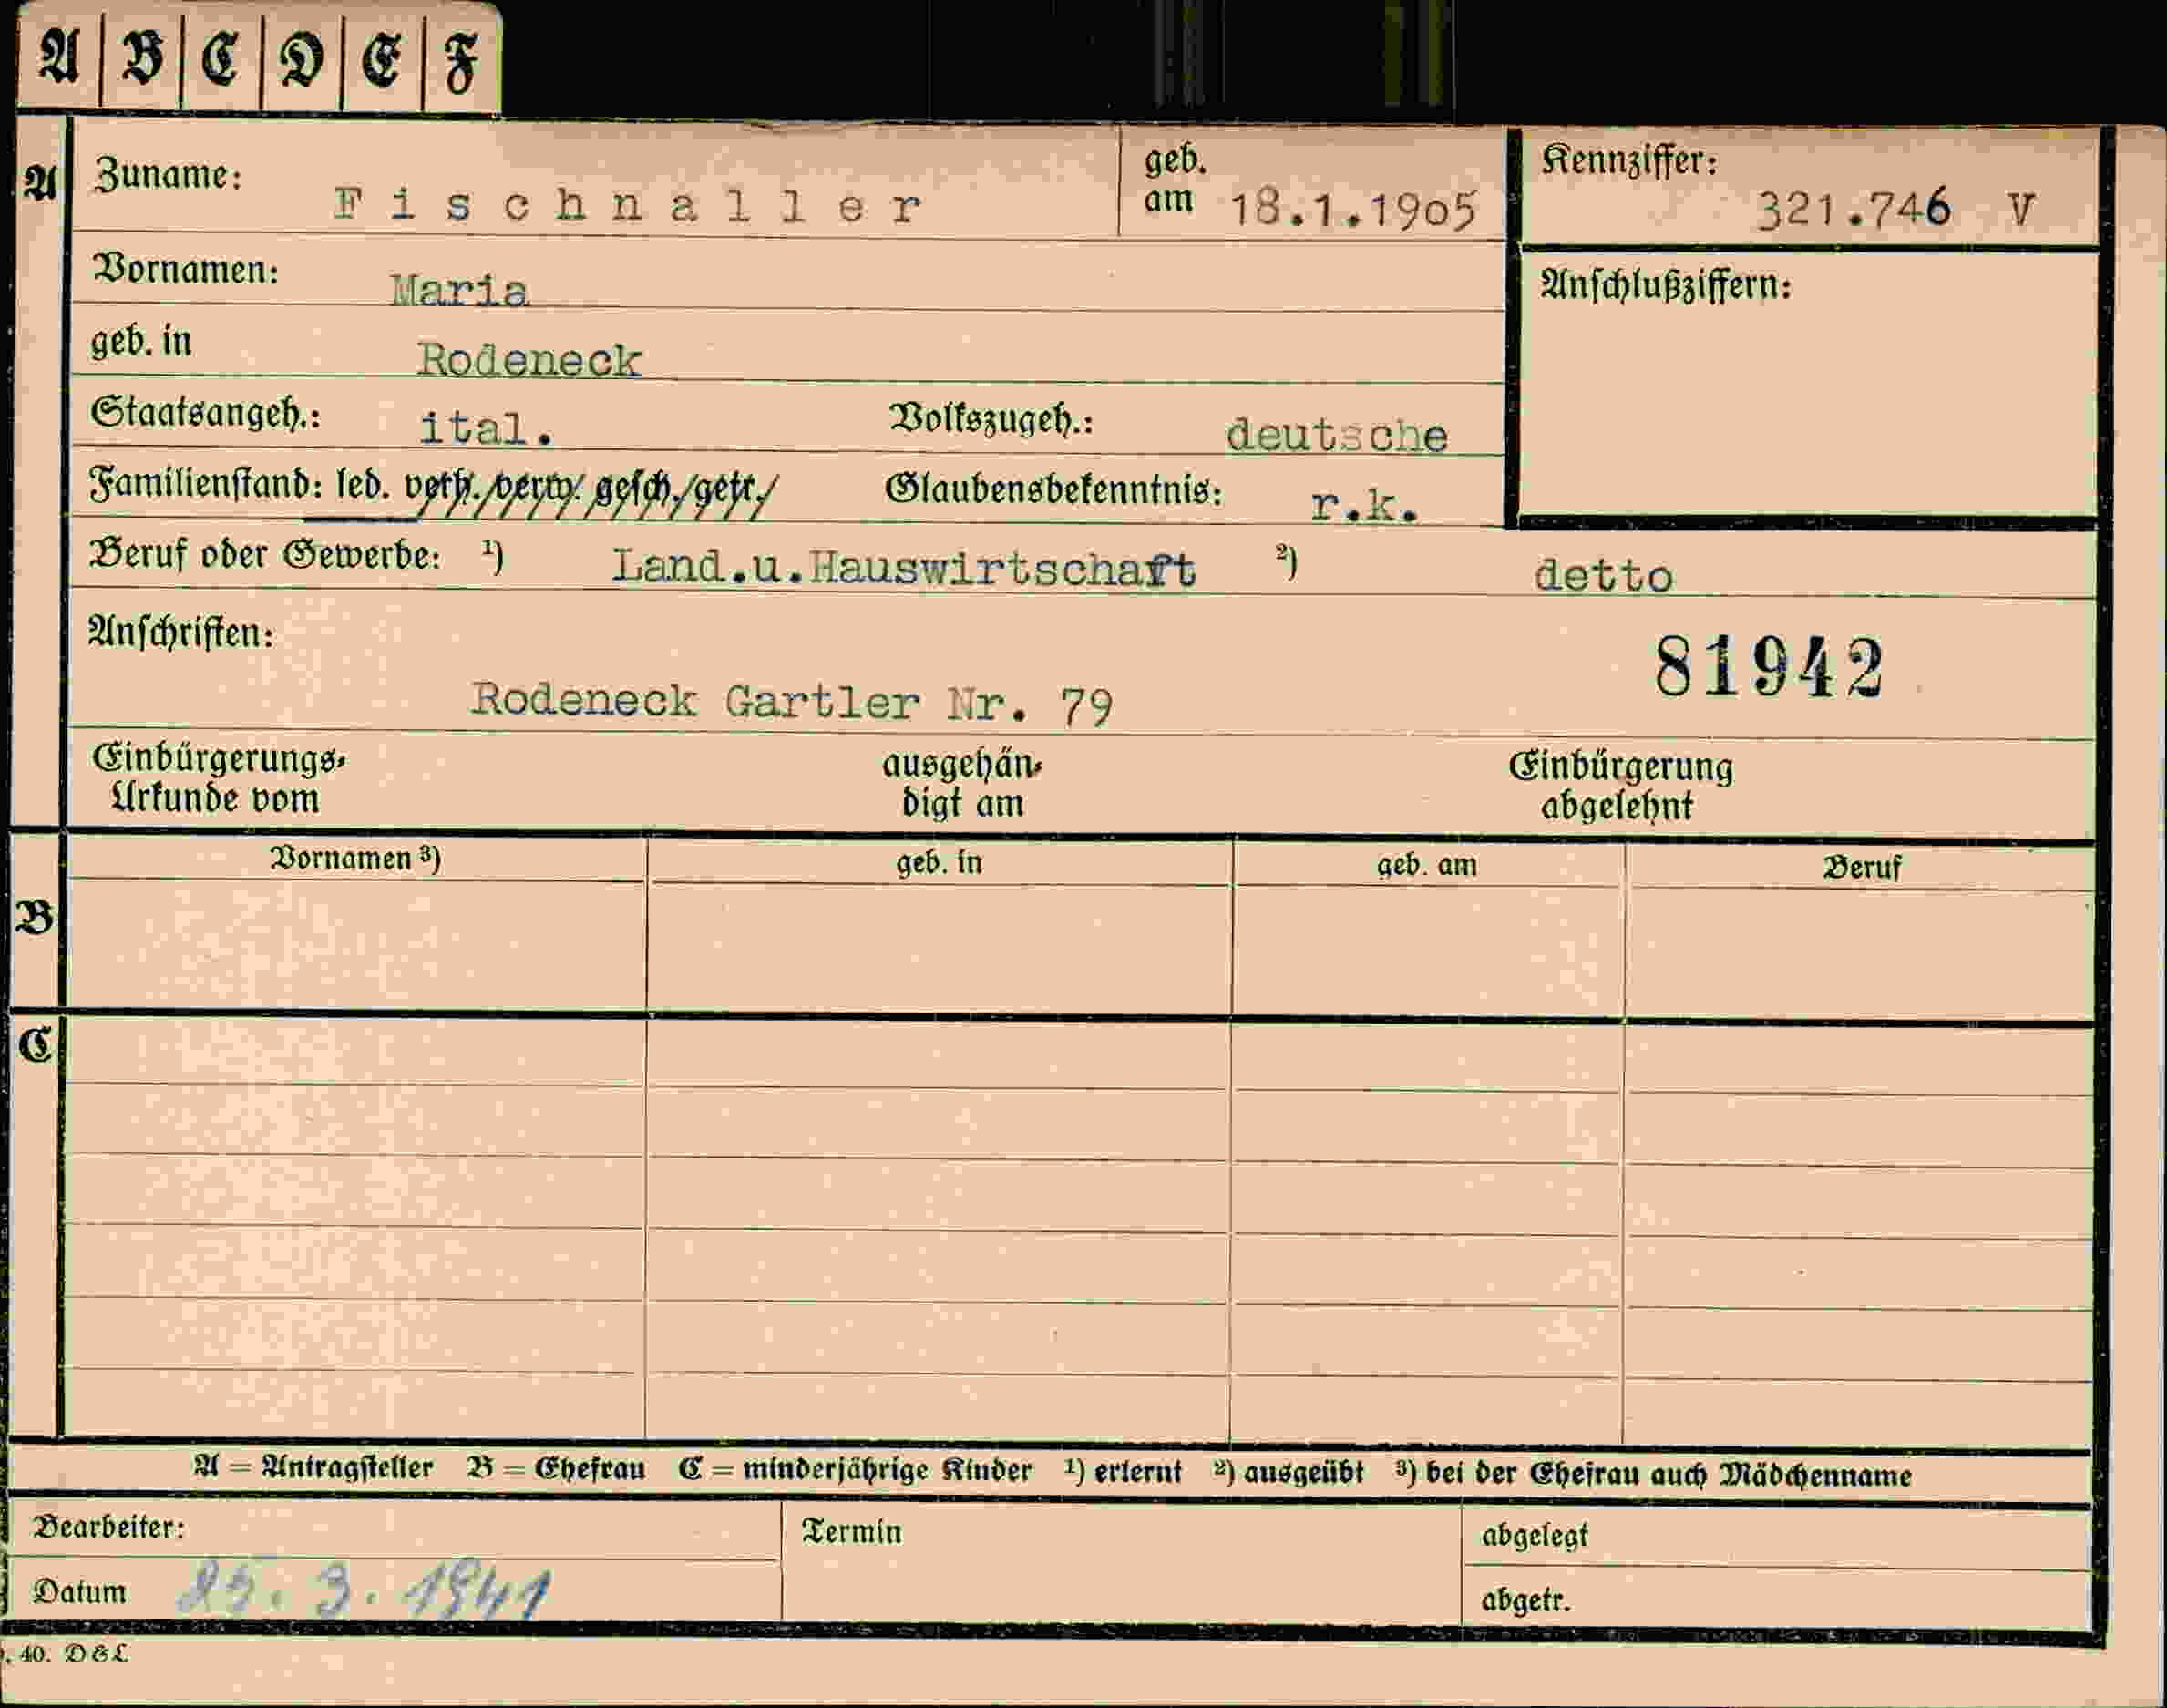 A B C D E F
A Zuname: Fischnaller geb. am 18.1.1905 Kennziffer: 321.746 V
Vornamen: Maria Anschlußziffern:
geb. in Rodeneck
Staatsangeh.: ital. Volkszugeh.: deutsche
Familienstand: led. verh./verw./gesch./getr./ Glaubensbekenntnis: r.k.
Beruf oder Gewerbe: ¹) Land.u.Hauswirtschaft ²) detto
Anschriften: 81942
Rodeneck Gartler Nr. 79
Einbürgerungs- ausgehän- Einbürgerung
Urkunde vom digt am abgelehnt
Vornamen ³) geb. in geb. am Beruf
B
C
A = Antragsteller B = Ehefrau C = minderjährige Kinder ¹) erlernt ²) ausgeübt ³) bei der Ehefrau auch Mädchenname
Bearbeiter: Termin abgelegt
Datum 25. 3. 1941 abgetr.
. 40. D & L